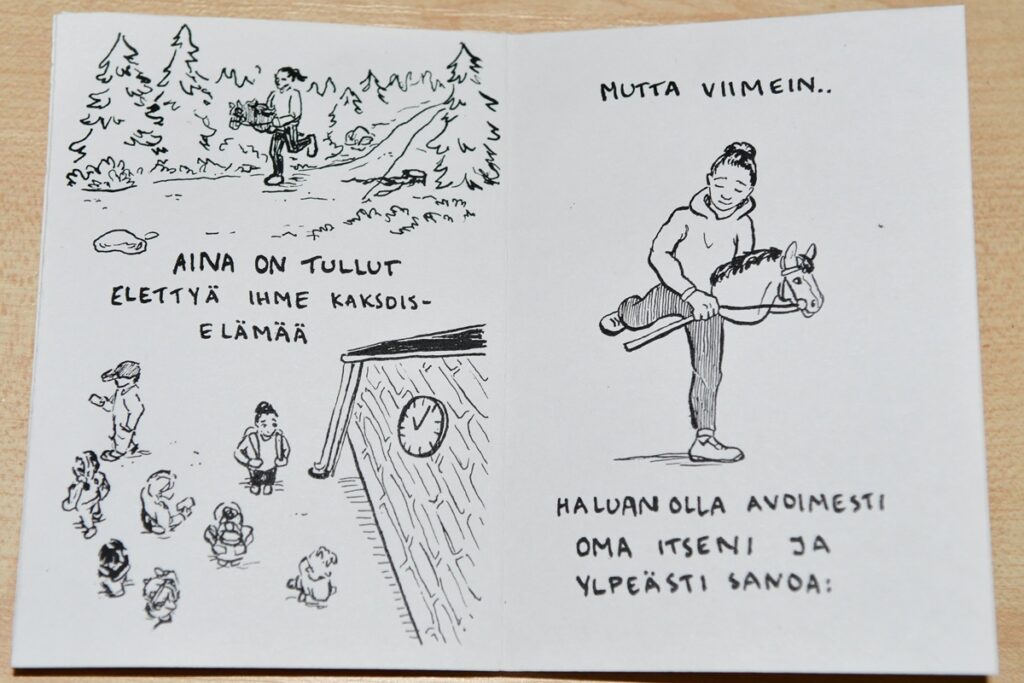 AINA ON TULLUT
ELETTYÄ IHME KAKSOIS-
ELÄMÄÄ
MUTTA VIIMEIN..
HALUAN OLLA AVOIMESTI
OMA ITSENI JA
YLPEÄSTI SANOA: